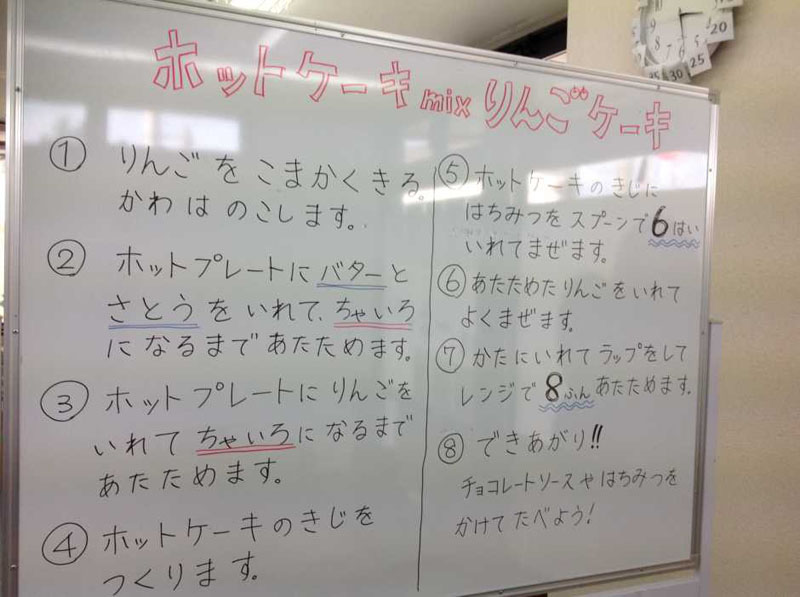 ホットケーキmixりんごケーキ
① りんごをこまかくきる。
かわはのこします。
② ホットプレートにバターと
さとうをいれて、ちゃいろ
になるまであたためます。
③ ホットプレートにりんごを
いれてちゃいろになるまで
あたためます。
④ ホットケーキのきじを
つくります。
⑤ ホットケーキのきじに
はちみつをスプーンで6はい
いれてまぜます。
⑥ あたためたりんごをいれて
よくまぜます。
⑦ かたにいれてラップをして
レンジで8ふんあたためます。
⑧ できあがり!!
チョコレートソースやはちみつを
かけてたべよう!
20
25
30